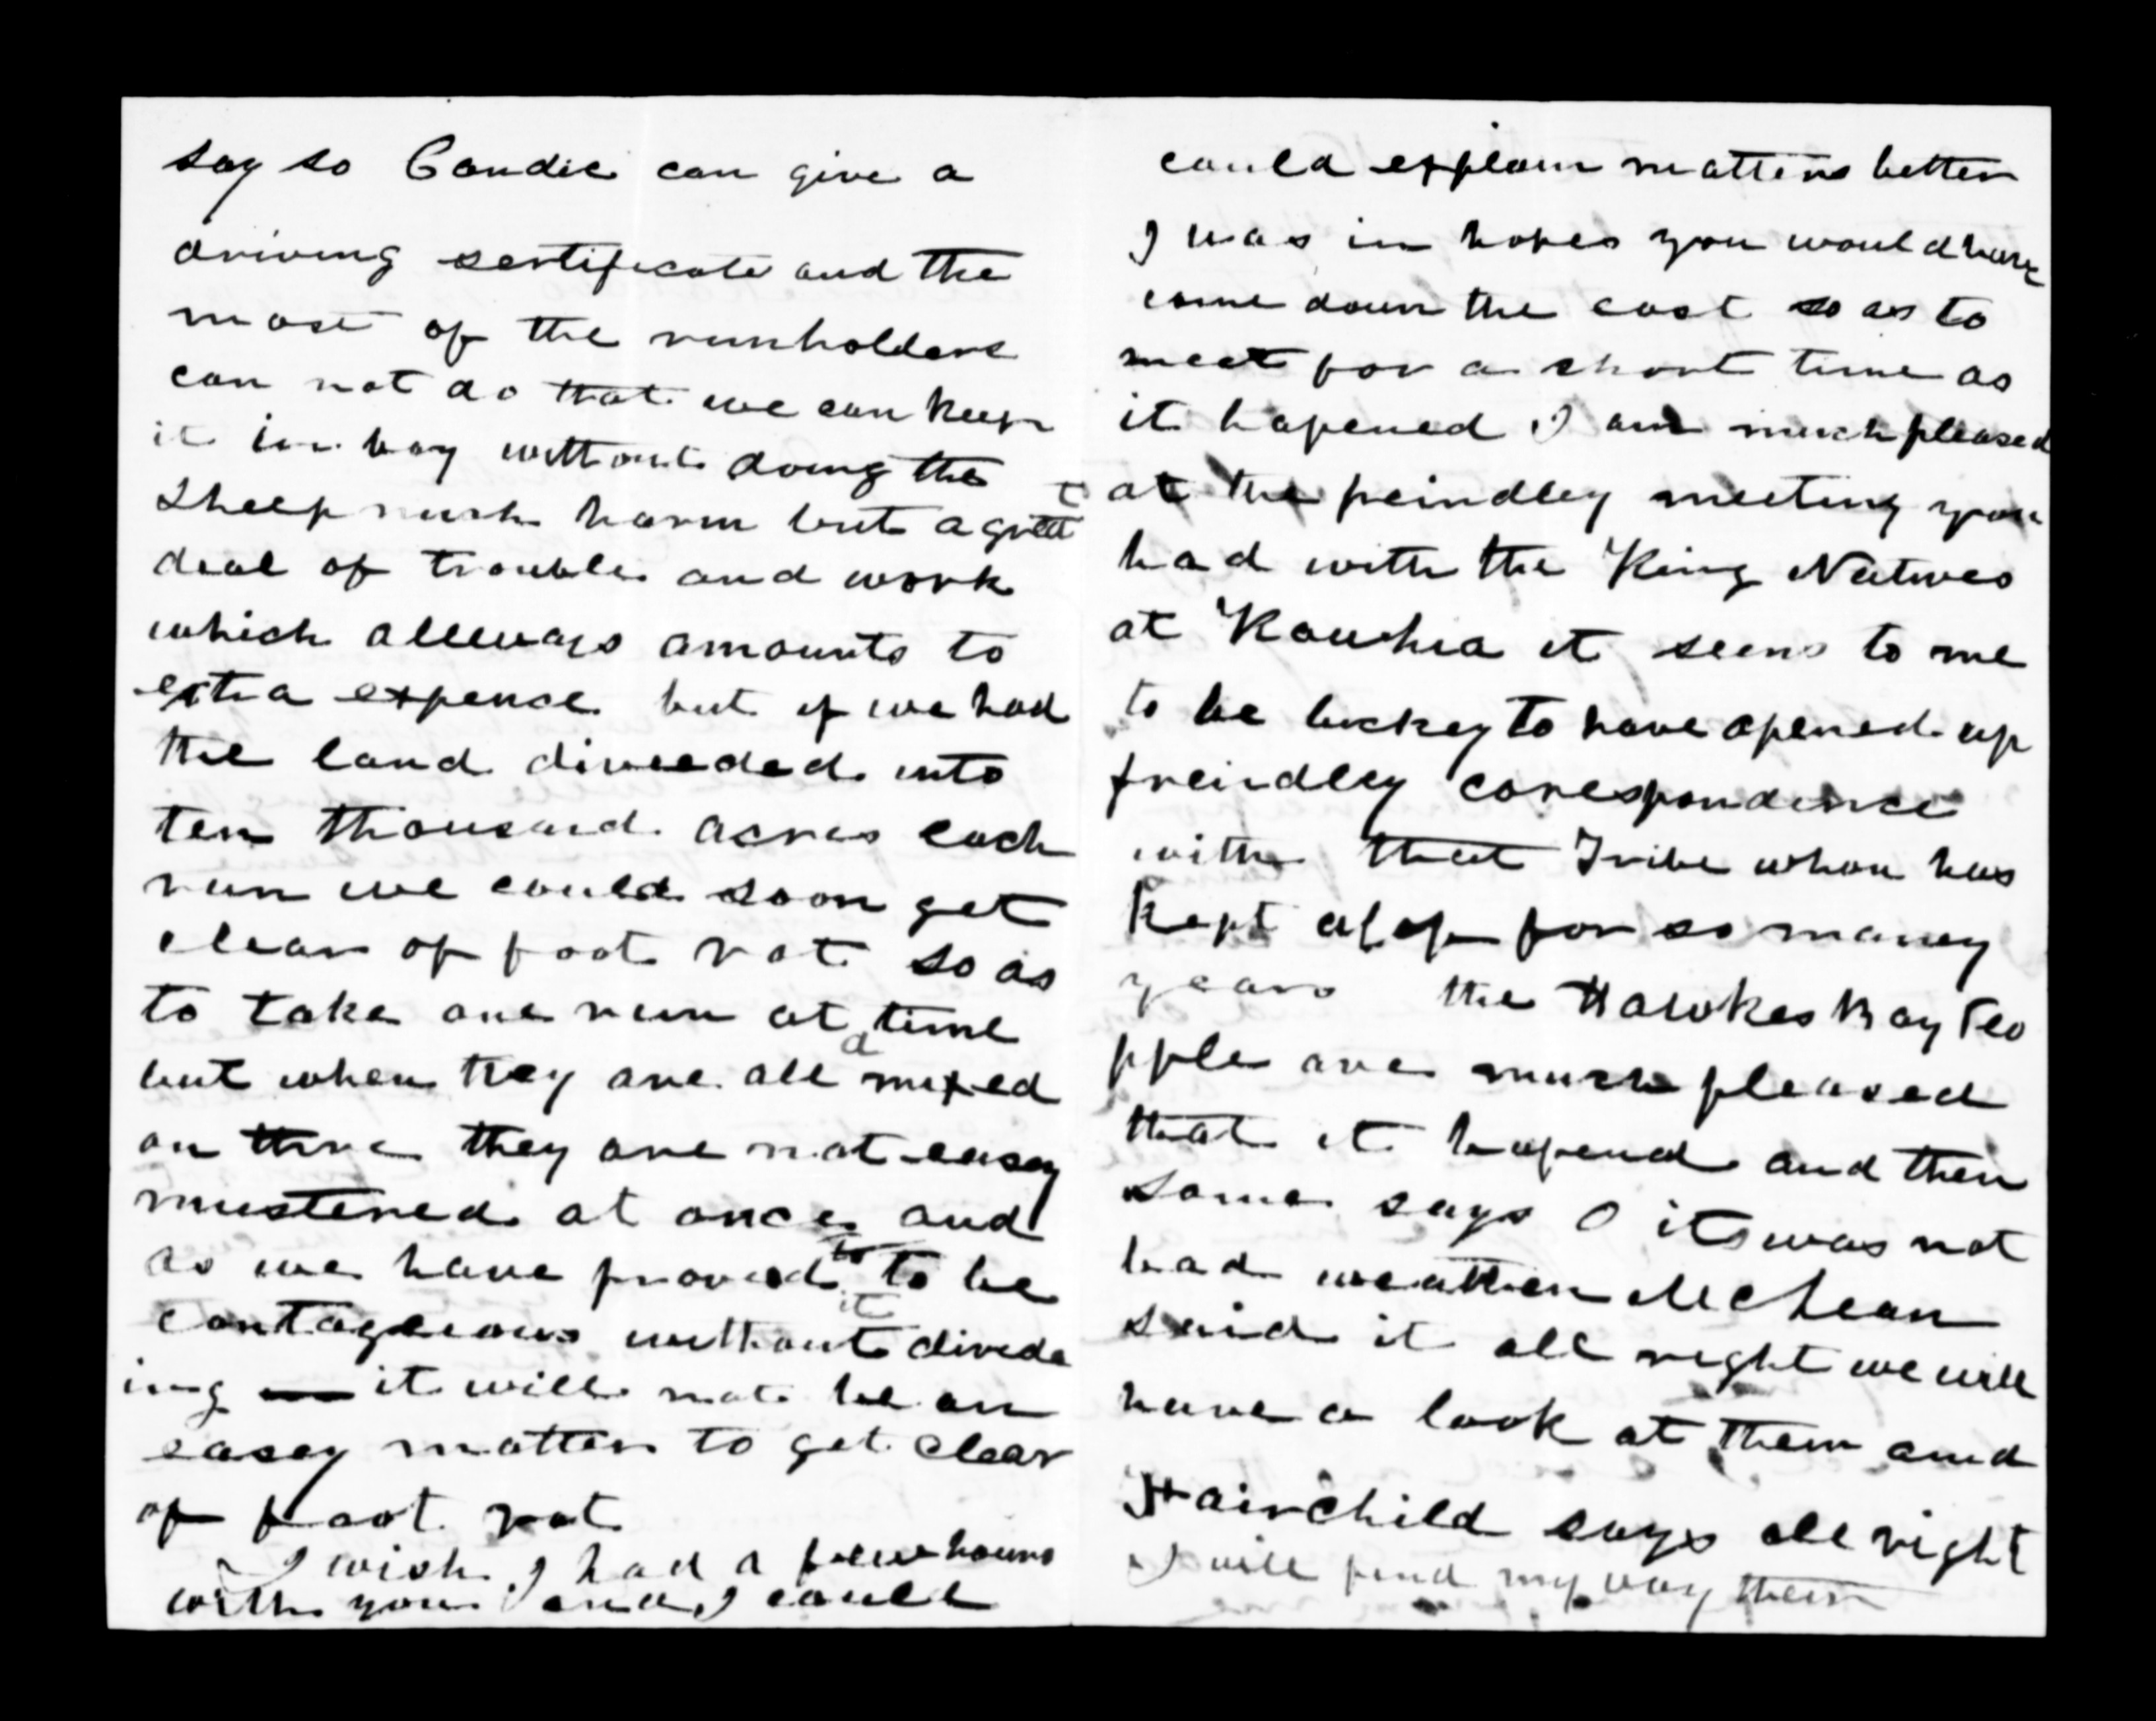 say so Condie can give a
driving sertificate and the
most of the runholders
can not do that we can keep
it in bay without doing the
sheep mush harm but a great
deal of trouble and work
which allways amounts to
extra expence but if we had
the land diveeded into
ten thousand acres each
run we could soon get
clear of foot rot so as
to take one run at a time
but when they are all mixed
on they are not easey
mustered at once and
as we have proved it to be
contageious without divide
ing it will not be an
easey matter to get clear
of foot rot
I wish I had a few hours
with you and I could
could explain matters better
I was in hopes you would have
come down the cost so as to
meet for a short time as
it hapened I am much pleased
at the freindley meeting you
had with the King Natives
at Kawhia it seems to me
to be luckey to have opened up
freindley corespondence
with that Tribe whom has
kept alof for so maney
years the Hawkes Bay Peo
pple are much pleased
that it hapend and then
some says O it was not
bad weather McLean
said it all right we will
have a look at them and
Fairchild says all right
I will find my way them